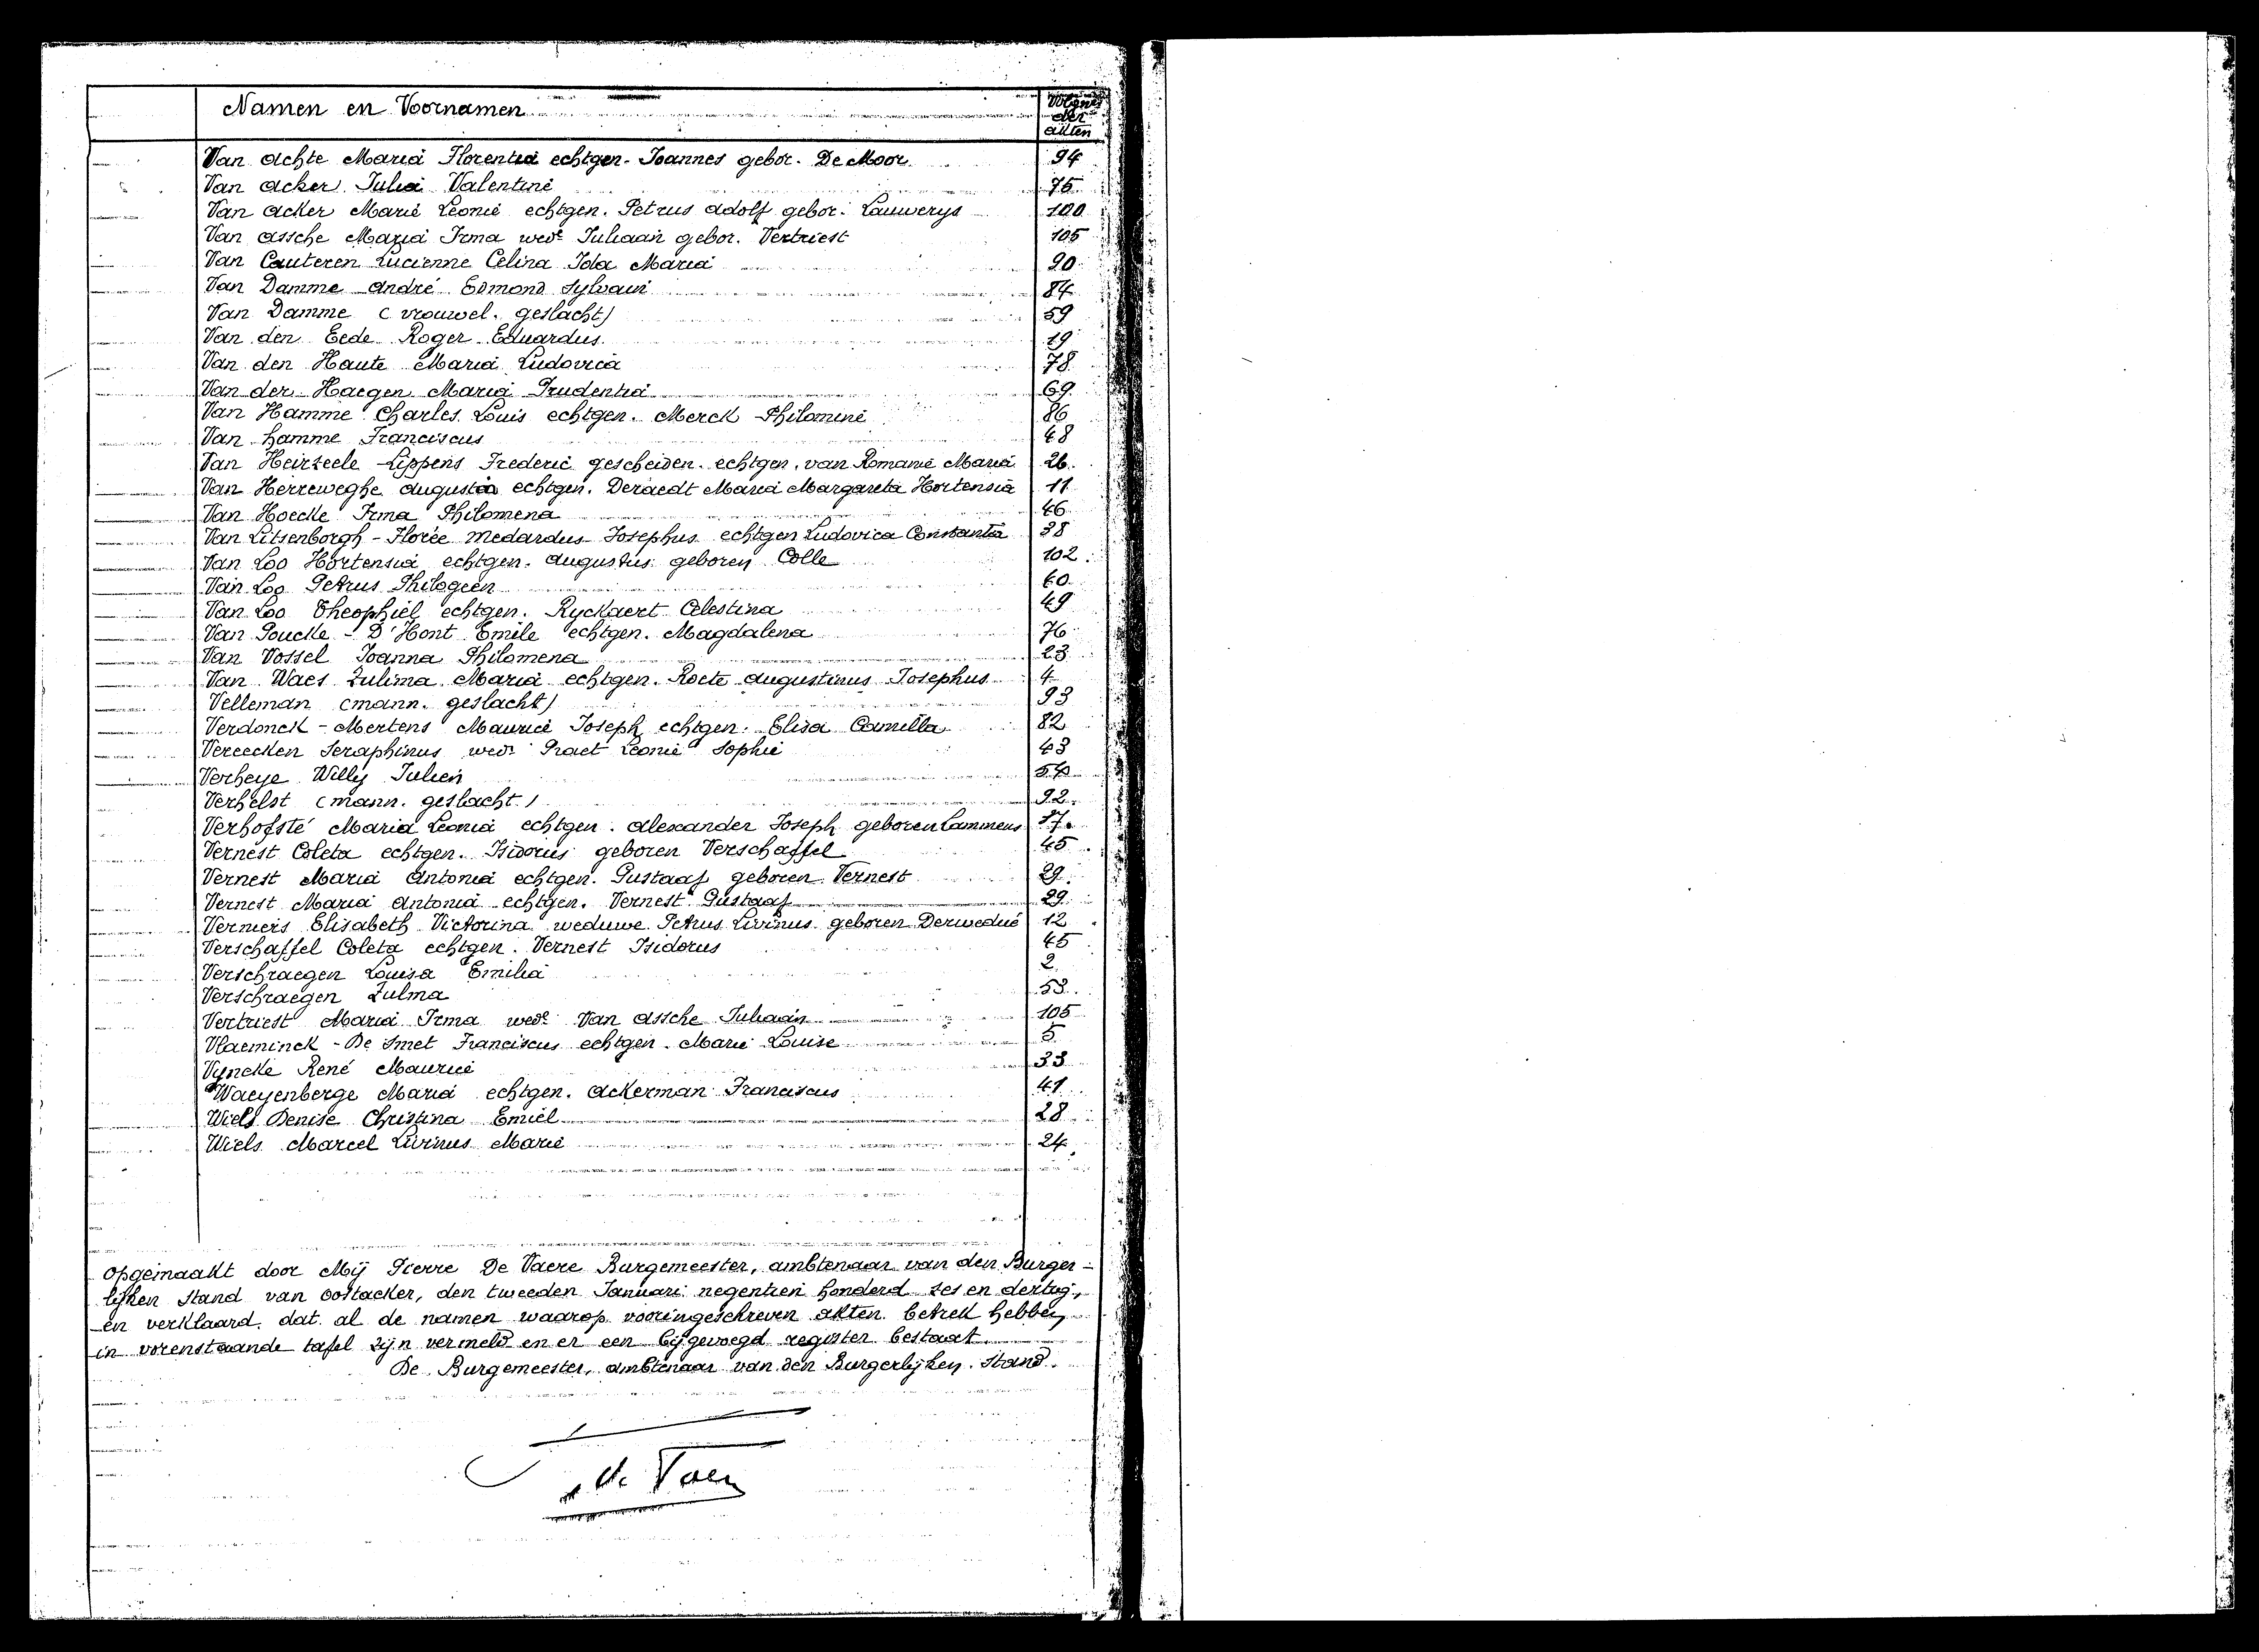 Namen en Voornamen
Volgnrs der akten
Van Achte Maria Florentia echtgen. Joannes gebor. De Moor 94
Van Acker Julia Valentine 75
Van Acker Marie Leonie echtgen. Petrus Adolf gebor. Lauwerys 100
Van Assche Maria Irma wede Juliaan gebor. Vertriest 105
Van Cauteren Lucienne Celina Ida Maria 90
Van Damme André Edmond Sylvain 84
Van Damme (vrouwel. geslacht) 59
Van den Eede Roger Eduardus 19
Van den Haute Maria Ludovica 78
Van der Haegen Maria Prudentia 69
Van Hamme Charles Louis echtgen. Merck Philomine 86
Van Hamme Franciscus 48
Van Heirzeele - Lippens Frederic gescheiden echtgen. van Romanie Maria 26
Van Herreweghe Augusta echtgen. Deraedt Maria Margareta Hortensia 11
Van Hoecke Irma Philomena 46
Van Litsenborgh - Florée Medardus Josephus echtgen Ludovica Constantia 38
Van Loo Hortensia echtgen. Augustus geboren Colle 102
Van Loo Petrus Philogeen 60
Van Loo Theophiel echtgen. Ryckaert Celestina 49
Van Poucke - D'Hont Emile echtgen. Magdalena 76
Van Vossel Joanna Philomena 23
Van Waes Zulima Maria echtgen. Roete Augustinus Josephus 4
Velleman (mann. geslacht) 93
Verdonck - Mertens Maurice Joseph echtgen. Elisa Camilla 82
Vereecken Seraphinus wedr Praet Leonie Sophie 43
Verheye Willy Julien
Verhelst (mann. geslacht) 92
Verhofsté Maria Leonia echtgen. Alexander Joseph geboren Lammens 37
Vernest Coleta echtgen. Isidorus geboren Verschaffel 45
Vernest Maria Antonia echtgen. Gustaaf geboren Vernest 29
Vernest Maria Antonia echtgen. Vernest Gustaaf 29
Vermeirs Elisabeth Victorina weduwe Petrus Livinus geboren Derwedué 12
Verschaffel Coleta echtgen. Vernest Isidorus 45
Verschraegen Louisa Emilia 2
Verschraegen Zulma 53
Vertriest Maria Irma wede Van Assche Juliaan 105
Vlaeminck - De Smet Franciscus echtgen. Marie Louise 5
Vyncke René Maurice 33
Waeyenberge Maria echtgen. Ackerman Franciscus 41
Wiels Denise Christina Emiel 28
Wiels Marcel Livinus Marie 24
Opgemaakt door Mij Pierre De Vaere Burgemeester, ambtenaar van den Burger-
lijken Stand van Oostacker, den tweeden Januari negentien honderd zes en dertig,
en verklaard dat al de namen waarop vooringeschreven akten betrek hebben,
in vorenstaande tafel zijn vermeld en er een bijgevoegd register bestaat.
De Burgemeester, ambtenaar van den Burgerlijken Stand.